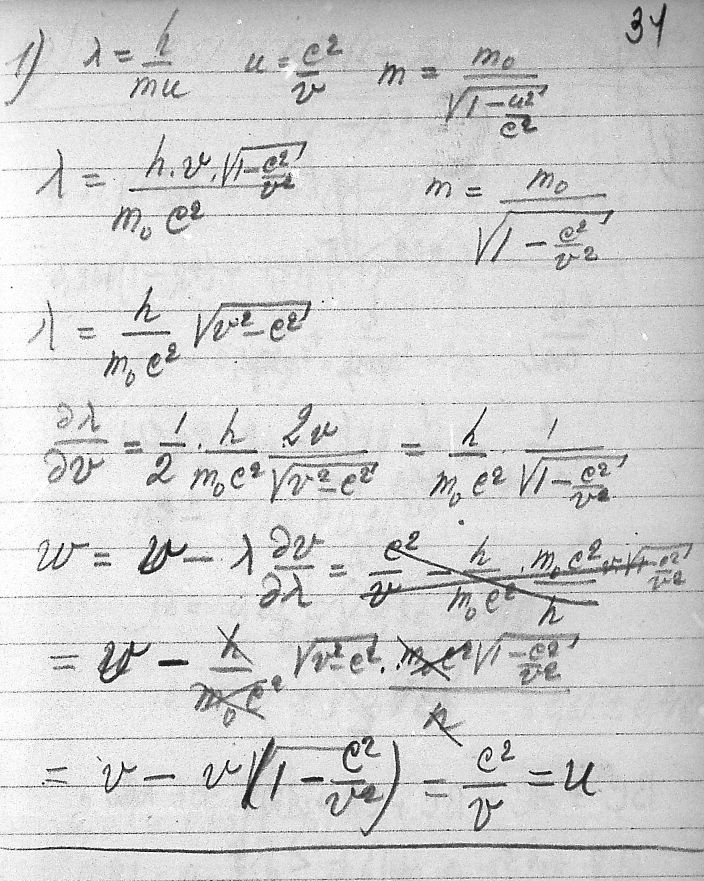 34
1) λ = h/mu   u = c²/v   m = m₀/√(1 − u²/c²)
λ = h·v·√(1 − c²/v²)/m₀c²   m = m₀/√(1 − c²/v²)
λ = h/m₀c² √(v² − c²)
∂λ/∂v = 1/2 · h/m₀c² 2v/√(v² − c²) = h/m₀c² · 1/√(1 − c²/v²)
w = v − λ ∂v/∂λ = c²/v − h/m₀c² · m₀c² v √(1 − c²/v²)/h
= v − h/m₀c² √(v² − c²) · m₀c² √(1 − c²/v²)/h
= v − v(1 − c²/v²) = c²/v = u